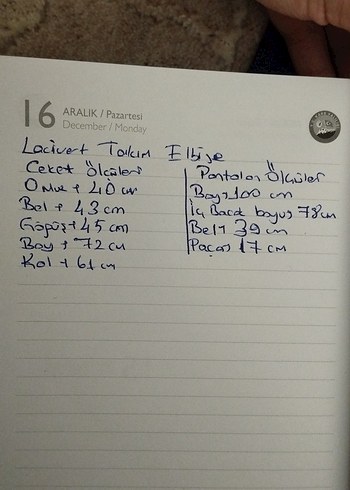 16
ARALIK / Pazartesi
December / Monday
Lacivert Takım Elbise
Ceket Ölçüleri
Omuz + 40 cm
Bel + 43 cm
Göğüs + 45 cm
Boy + 72 cm
Kol + 61 cm
Pantolon Ölçüler
Boy 100 cm
İç Bacak boyu 78 cm
Bel 39 cm
Paça 17 cm